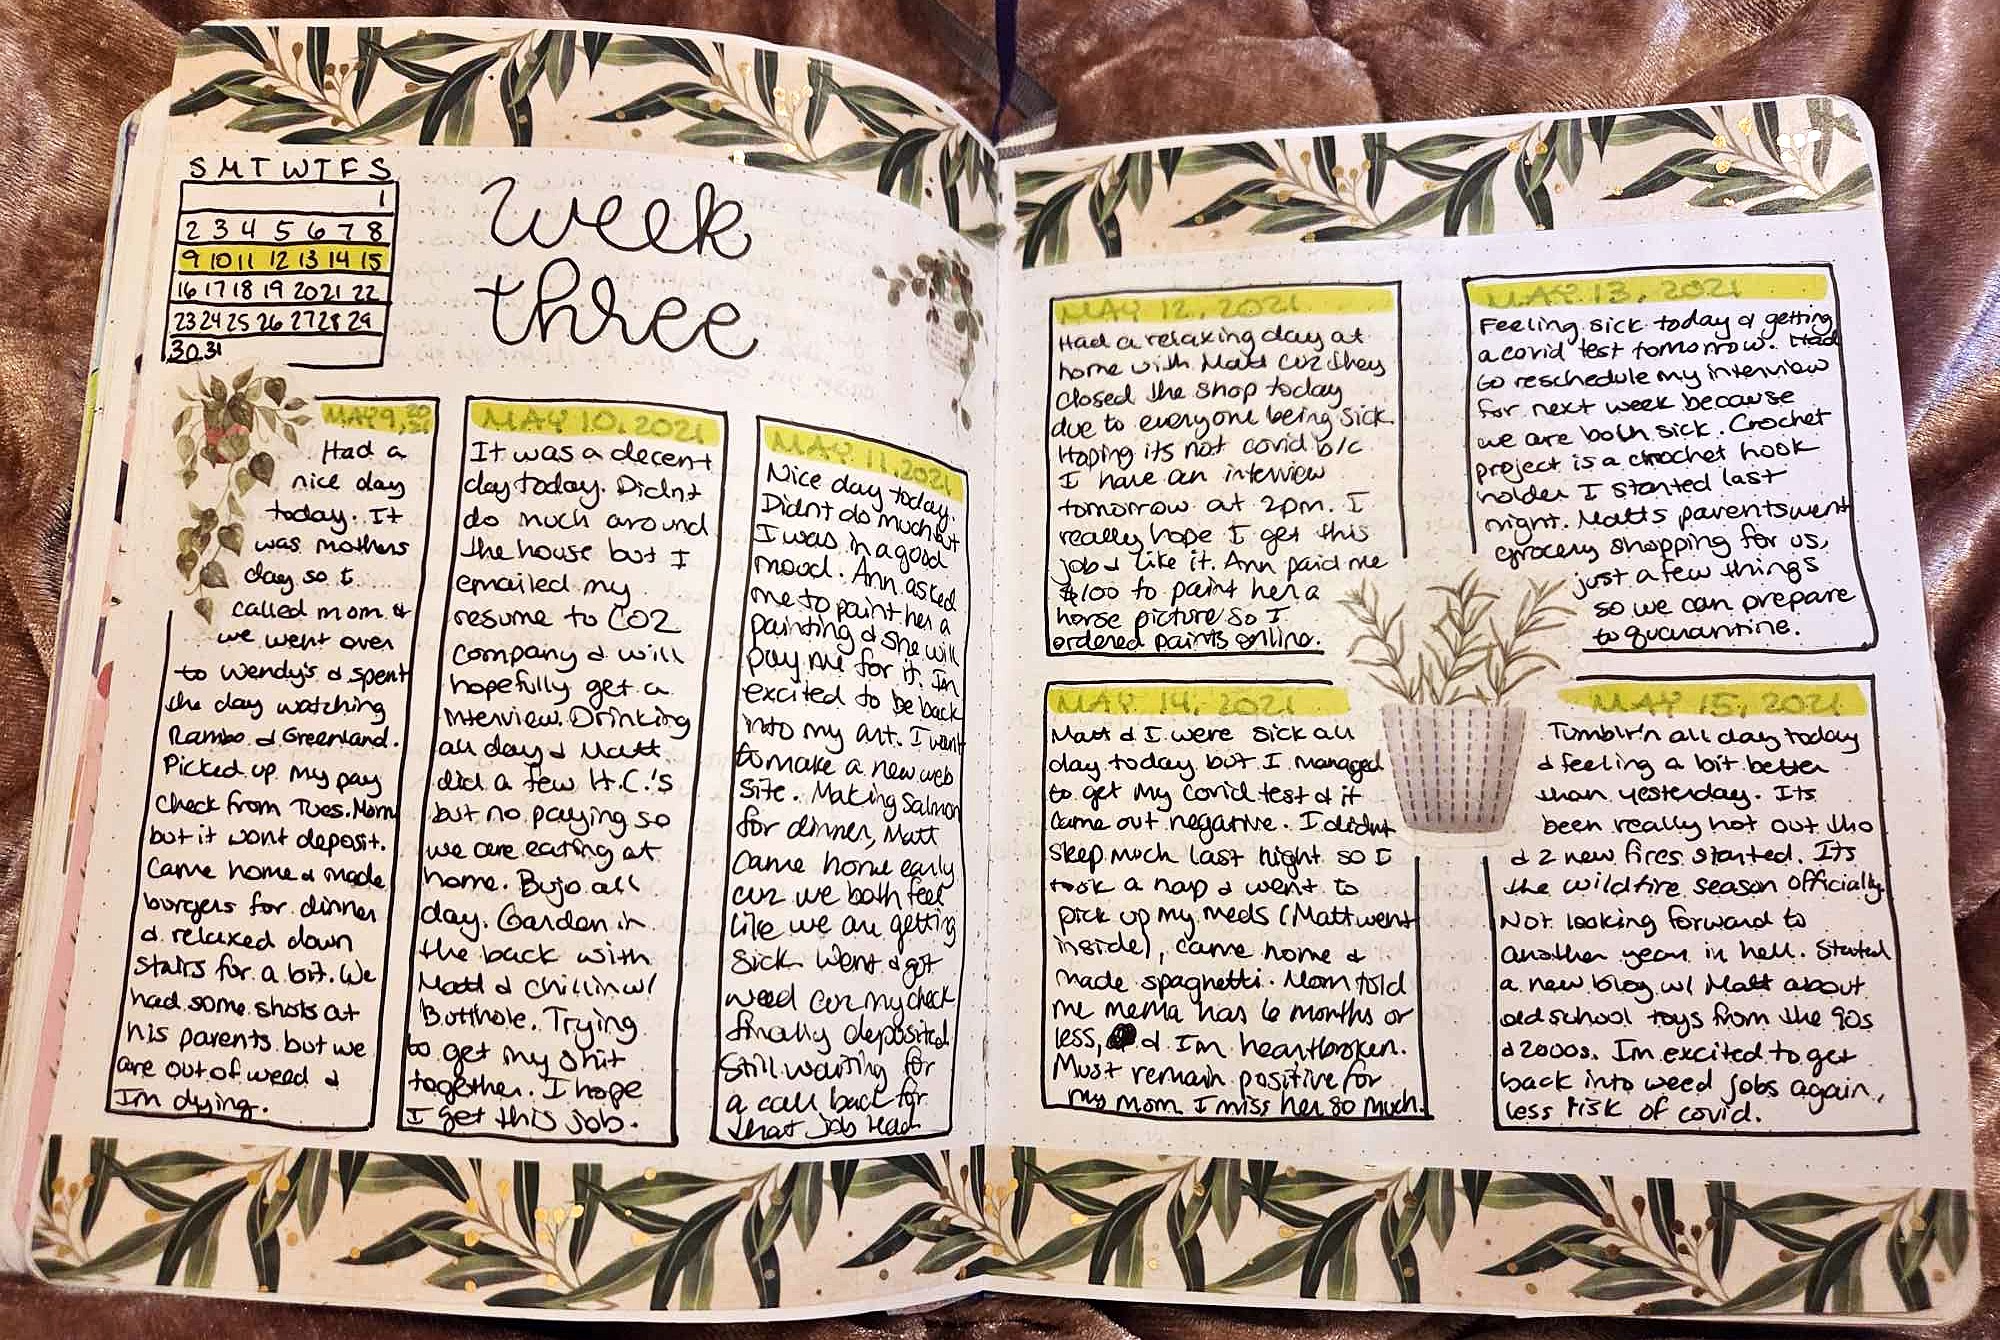 S M T W T F S
1
2 3 4 5 6 7 8
9 10 11 12 13 14 15
16 17 18 19 20 21 22
23 24 25 26 27 28 29
30 31
week
three
MAY 9, 2021
Had a
nice day
today. It
was mothers
day so I
called mom &
we went over
to Wendy's & spent
the day watching
Rambo & Greenland.
Picked up my pay
check from Tues. Morn
but it wont deposit.
Came home & made
burgers for dinner
& relaxed down
stairs for a bit. We
had some shots at
his parents but we
are out of weed &
Im dying.
MAY 10, 2021
It was a decent
day today. Didnt
do much around
the house but I
emailed my
resume to CO2
company & will
hopefully get a
interview. Drinking
all day & Matt
did a few H.C.'s
but no paying so
we are eating at
home. Bujo all
day. Garden in
the back with
Matt & chillin w/
Butthole. Trying
to get my shit
together. I hope
I get this job.
MAY 11, 2021
Nice day today.
Didnt do much but
I was in a good
mood. Ann asked
me to paint her a
painting & she will
pay me for it. Im
excited to be back
into my art. I want
to make a new web
site. Making salmon
for dinner, Matt
came home early
cuz we both feel
like we are getting
sick. Went & got
weed cuz my check
finally deposited
Still waiting for
a call back for
that job lead
MAY 12, 2021
Had a relaxing day at
home with Matt cuz they
closed the shop today
due to everyone being sick.
Hoping its not covid b/c
I have an interview
tomorrow at 2pm. I
really hope I get this
job & like it. Ann paid me
$100 to paint her a
horse picture so I
ordered paints online.
MAY 13, 2021
Feeling sick today & getting
a covid test tomorrow. Had
to reschedule my interview
for next week because
we are both sick. Crochet
project is a crochet hook
holder I started last
night. Matts parents went
grocery shopping for us,
just a few things
so we can prepare
to quarantine.
MAY 14, 2021
Matt & I were sick all
day today but I managed
to get my covid test & it
came out negative. I didnt
sleep much last night so I
took a nap & went to
pick up my meds (Matt went
inside), came home &
made spaghetti. Mom told
me mema has 6 months or
less, & Im heartbroken.
Must remain positive for
my mom. I miss her so much.
MAY 15, 2021
Tumblr'n all day today
& feeling a bit better
than yesterday. Its
been really hot out tho
& 2 new fires started. Its
the wildfire season officially.
Not looking forward to
another year in hell. Started
a new blog w/ Matt about
old school toys from the 90s
& 2000s. Im excited to get
back into weed jobs again,
less risk of covid.